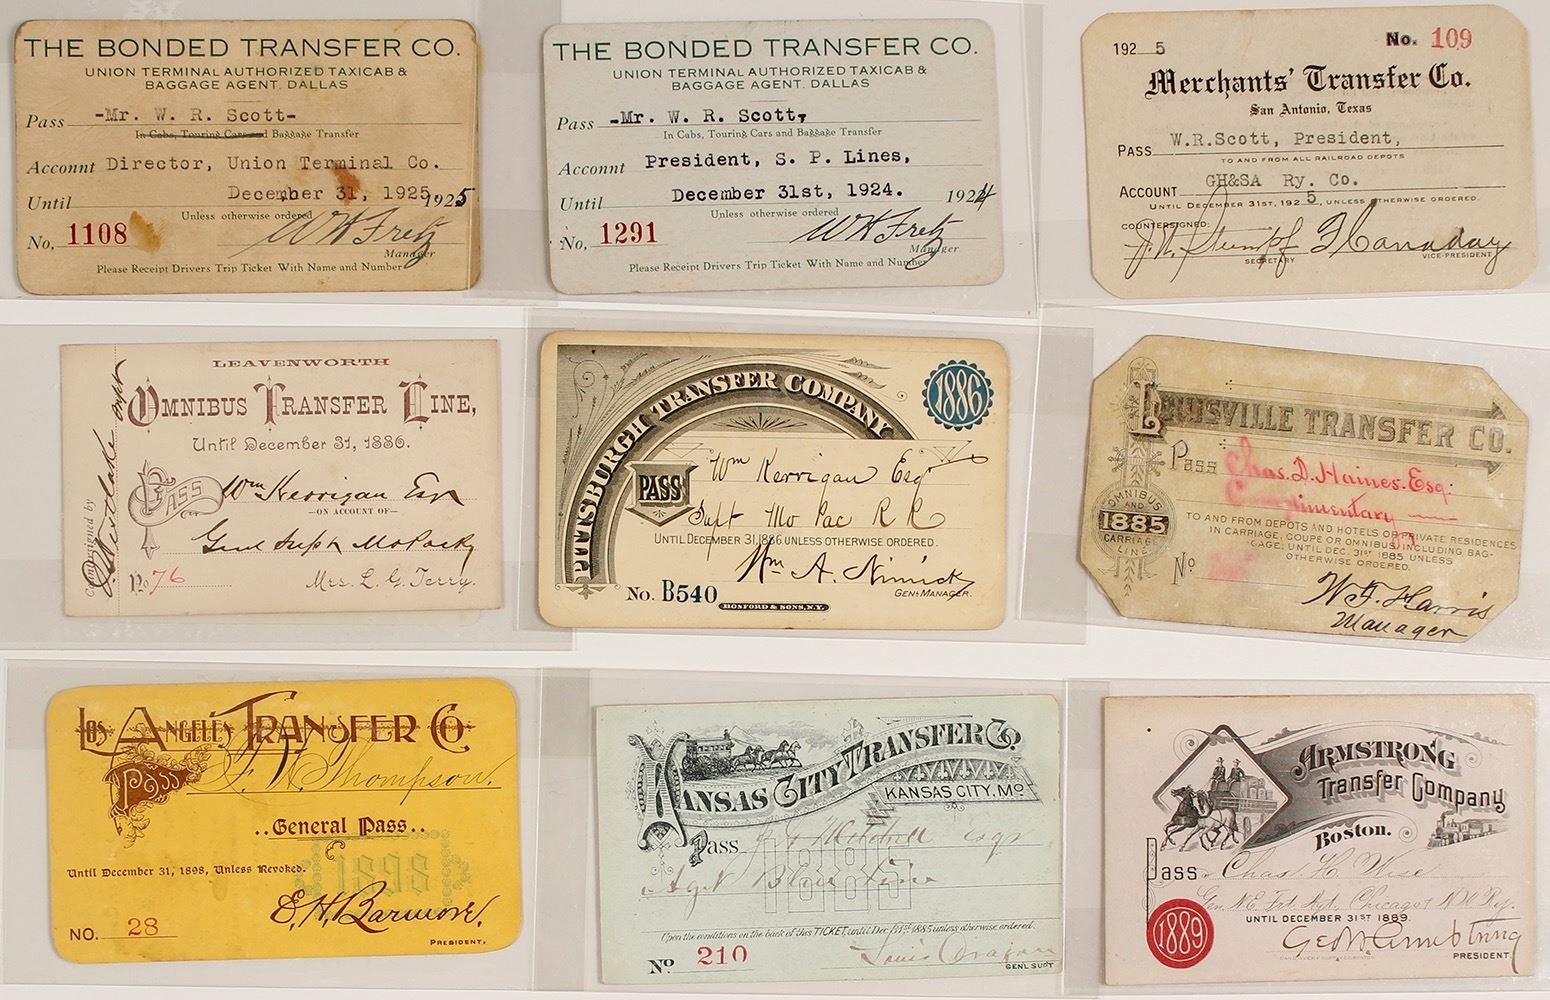 THE BONDED TRANSFER CO.
UNION TERMINAL AUTHORIZED TAXICAB &
BAGGAGE AGENT. DALLAS
Pass -Mr. W. R. Scott-
In Cabs, Touring Cars and Baggage Transfer
Account Director, Union Terminal Co.
Until December 31, 1925. 1925
Unless otherwise ordered
No, 1108 W H Fretz
Manager
Please Receipt Drivers Trip Ticket With Name and Number
THE BONDED TRANSFER CO.
UNION TERMINAL AUTHORIZED TAXICAB &
BAGGAGE AGENT. DALLAS
Pass -Mr. W. R. Scott,
In Cabs, Touring Cars and Baggage Transfer
Account President, S. P. Lines,
Until December 31st, 1924. 1924
Unless otherwise ordered
No, 1291 W H Fretz
Manager
Please Receipt Drivers Trip Ticket With Name and Number
192 5 No. 109
Merchants' Transfer Co.
San Antonio, Texas
PASS W.R.Scott, President,
TO AND FROM ALL RAILROAD DEPOTS
ACCOUNT GH&SA Ry. Co.
UNTIL DECEMBER 31ST, 192 5, UNLESS OTHERWISE ORDERED.
COUNTERSIGNED:
J. R. Stumpf Canaday
SECRETARY VICE-PRESIDENT
LEAVENWORTH
OMNIBUS TRANSFER LINE,
Until December 31, 1886.
PASS Wm Kerrigan Esq
—ON ACCOUNT OF—
Genl Supt Mo Pac Ry
No 76 Mrs. L. G. Terry.
Countersigned by
PITTSBURGH TRANSFER COMPANY
1886
PASS
Wm Kerrigan Esq
Supt Mo Pac R R
UNTIL DECEMBER 31, 1886 UNLESS OTHERWISE ORDERED.
Wm A. Nimick
No. B540 GENL MANAGER.
HOSFORD & SONS, N.Y.
LOUISVILLE TRANSFER CO.
Pass Chas. D. Haines. Esq.
Complimentary
OMNIBUS
AND
1885
CARRIAGE
LINE
TO AND FROM DEPOTS AND HOTELS OR PRIVATE RESIDENCES
IN CARRIAGE, COUPE OR OMNIBUS INCLUDING BAG-
GAGE; UNTIL DEC. 31ST 1885 UNLESS
OTHERWISE ORDERED.
No
W. F. Harris
Manager
LOS ANGELES TRANSFER CO
Pass F. W. Thompson.
..General Pass..
1898
Until December 31, 1898, Unless Revoked.
E. H. Barmore.
NO. 28
PRESIDENT,
KANSAS CITY TRANSFER CO.
KANSAS CITY, MO
Pass Mitchell Esqr
1885
Agt Blue Line
Upon the conditions on the back of this TICKET, until Dec 31st 1885 unless otherwise ordered.
No 210 Louis
GEN'L SUPT
ARMSTRONG
Transfer Company
Boston.
Pass Chas. H. Wise
Gen. N.E. Frt. Agt. Chicago & N W Ry.
UNTIL DECEMBER 31ST 1889.
1889
Geo W Armstrong
PRESIDENT.